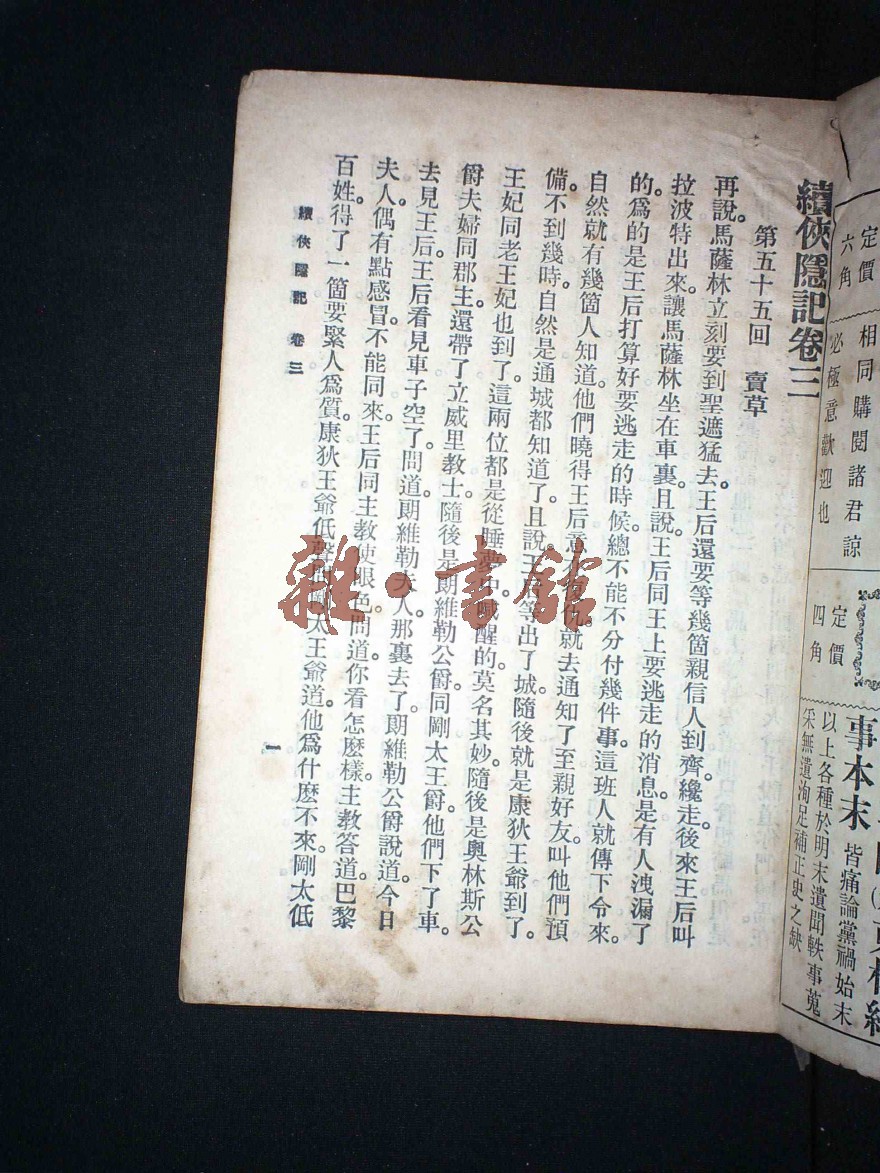 續俠隱記卷三
第五十五回 賣草
再說。馬薩林立刻要到聖遮猛去。王后還要等幾箇親信人到齊纔走。後來王后叫
拉波特出來。讓馬薩林坐在車裏。且說。王后同王上要逃走的消息。是有人洩漏了
的。爲的是王后打算好要逃走的時候。總不能不分付幾件事。這班人就傳下令來。
自然就有幾箇人知道。他們曉得王后意就去通知了至親好友。叫他們預
備。不到幾時。自然是通城都知道了。且說王后等出了城。隨後就是康狄王爺到了。
王妃同老王妃也到了。這兩位都是從睡夢中喊醒的。莫名其妙。隨後是奧林斯公
爵夫婦同郡主。還帶了立威里教士。隨後是朗維勒公爵。同剛太王爵。他們下了車。
去見王后。王后看見車子空了。問道。朗維勒夫人那裏去了。朗維勒公爵說道。今日
夫人偶有點感冒。不能同來。王后同主教使眼色。問道。你看怎麽樣。主教答道。巴黎
百姓。得了一箇要緊人爲質。康狄王爺低聲剛太王爺道。他爲什麽不來。剛太低
續俠隱記 卷三
一
雜·書館
定價
六角
相同購閱諸君諒
必極意歡迎也
定價
四角
事本末
皆痛論黨禍始末
以上各種於明末遺聞軼事蒐
采無遺洵足補正史之缺